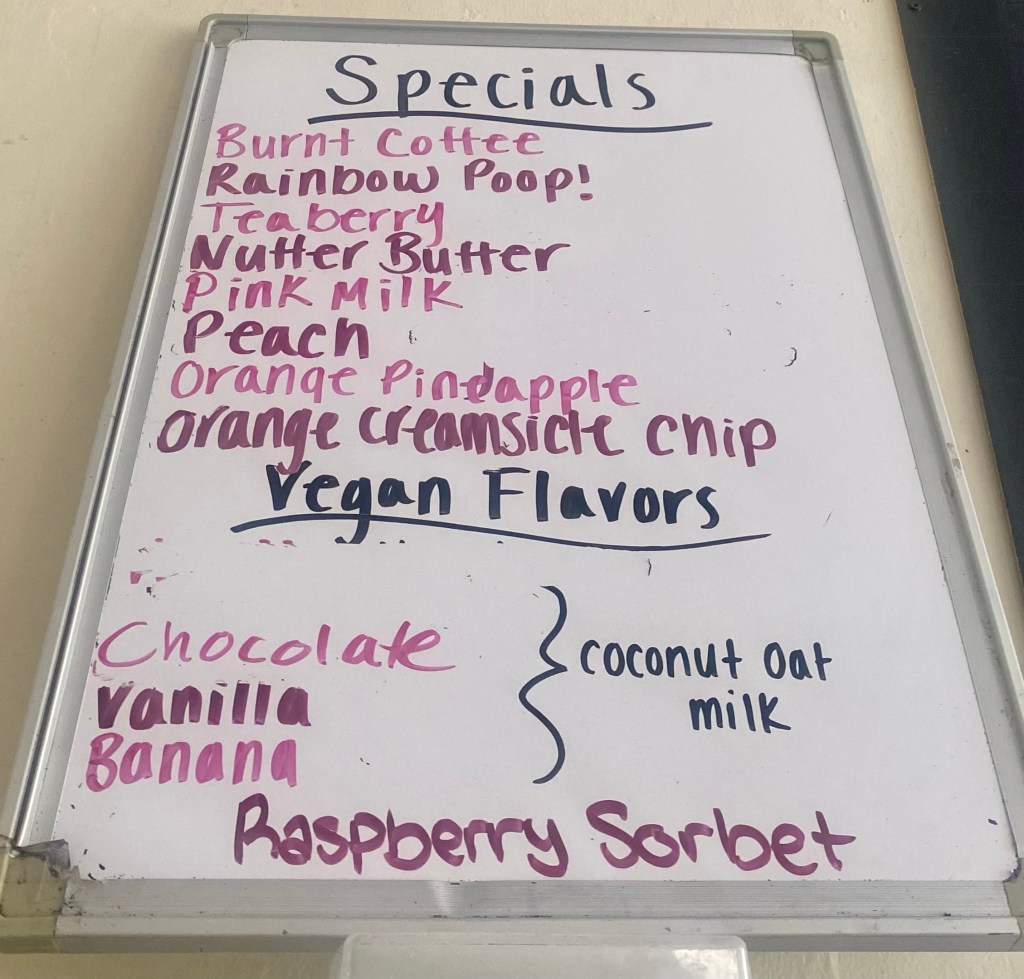 Specials
Burnt Coffee
Rainbow Poop!
Teaberry
Nutter Butter
Pink Milk
Peach
Orange Pineapple
Orange Creamsicle Chip
Vegan Flavors
Chocolate
Vanilla
Banana
coconut oat
milk
Raspberry Sorbet